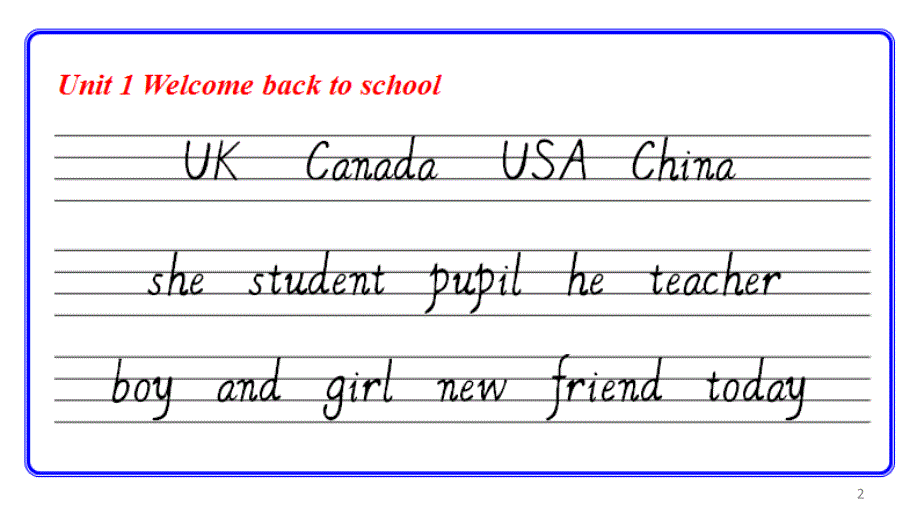 Unit 1 Welcome back to school
UK Canada USA China
she student pupil he teacher
boy and girl new friend today
2